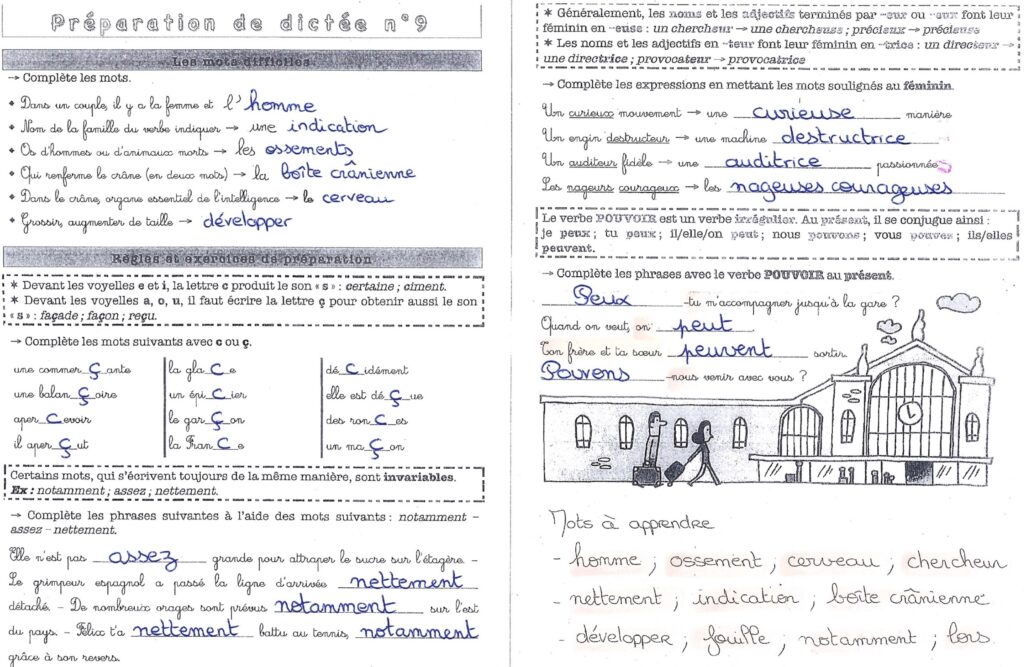 Préparation de dictée n°9
Les mots difficiles
→ Complète les mots.
• Dans un couple, il y a la femme et l'homme
• Nom de la famille du verbe indiquer → une indication
• Os d'hommes ou d'animaux morts → les ossements
• Qui renferme le crâne (en deux mots) → la boîte crânienne
• Dans le crâne, organe essentiel de l'intelligence → le cerveau
• Grossir, augmenter de taille → développer
Règles et exercices de préparation
* Devant les voyelles e et i, la lettre c produit le son « s » : certaine ; ciment.
* Devant les voyelles a, o, u, il faut écrire la lettre ç pour obtenir aussi le son
« s » : façade ; façon ; reçu.
→ Complète les mots suivants avec c ou ç.
une commerçante la glace décidément
une balançoire un épicier elle est déçue
apercevoir le garçon des ronces
il aperçut la France un maçon
Certains mots, qui s'écrivent toujours de la même manière, sont invariables.
Ex : notamment ; assez ; nettement.
→ Complète les phrases suivantes à l'aide des mots suivants : notamment –
assez – nettement.
Elle n'est pas assez grande pour attraper le sucre sur l'étagère. –
Le grimpeur espagnol a passé la ligne d'arrivée nettement
détaché. – De nombreux orages sont prévus notamment sur l'est
du pays. – Félix t'a nettement battu au tennis, notamment
grâce à son revers.
* Généralement, les noms et les adjectifs terminés par -eur ou -eux font leur
féminin en -euse : un chercheur → une chercheuse ; précieux → précieuse
* Les noms et les adjectifs en -teur font leur féminin en -trice : un directeur →
une directrice ; provocateur → provocatrice
→ Complète les expressions en mettant les mots soulignés au féminin.
Un curieux mouvement → une curieuse manière
Un engin destructeur → une machine destructrice
Un auditeur fidèle → une auditrice passionnée
Les nageurs courageux → les nageuses courageuses
Le verbe POUVOIR est un verbe irrégulier. Au présent, il se conjugue ainsi :
je peux ; tu peux ; il/elle/on peut ; nous pouvons ; vous pouvez ; ils/elles
peuvent.
→ Complète les phrases avec le verbe POUVOIR au présent.
Peux -tu m'accompagner jusqu'à la gare ?
Quand on veut, on peut
Ton frère et ta sœur peuvent sortir.
Pouvons -nous venir avec vous ?
Mots à apprendre
- homme ; ossement ; cerveau ; chercheur
- nettement ; indication ; boîte crânienne
- développer ; fouille ; notamment ; lors